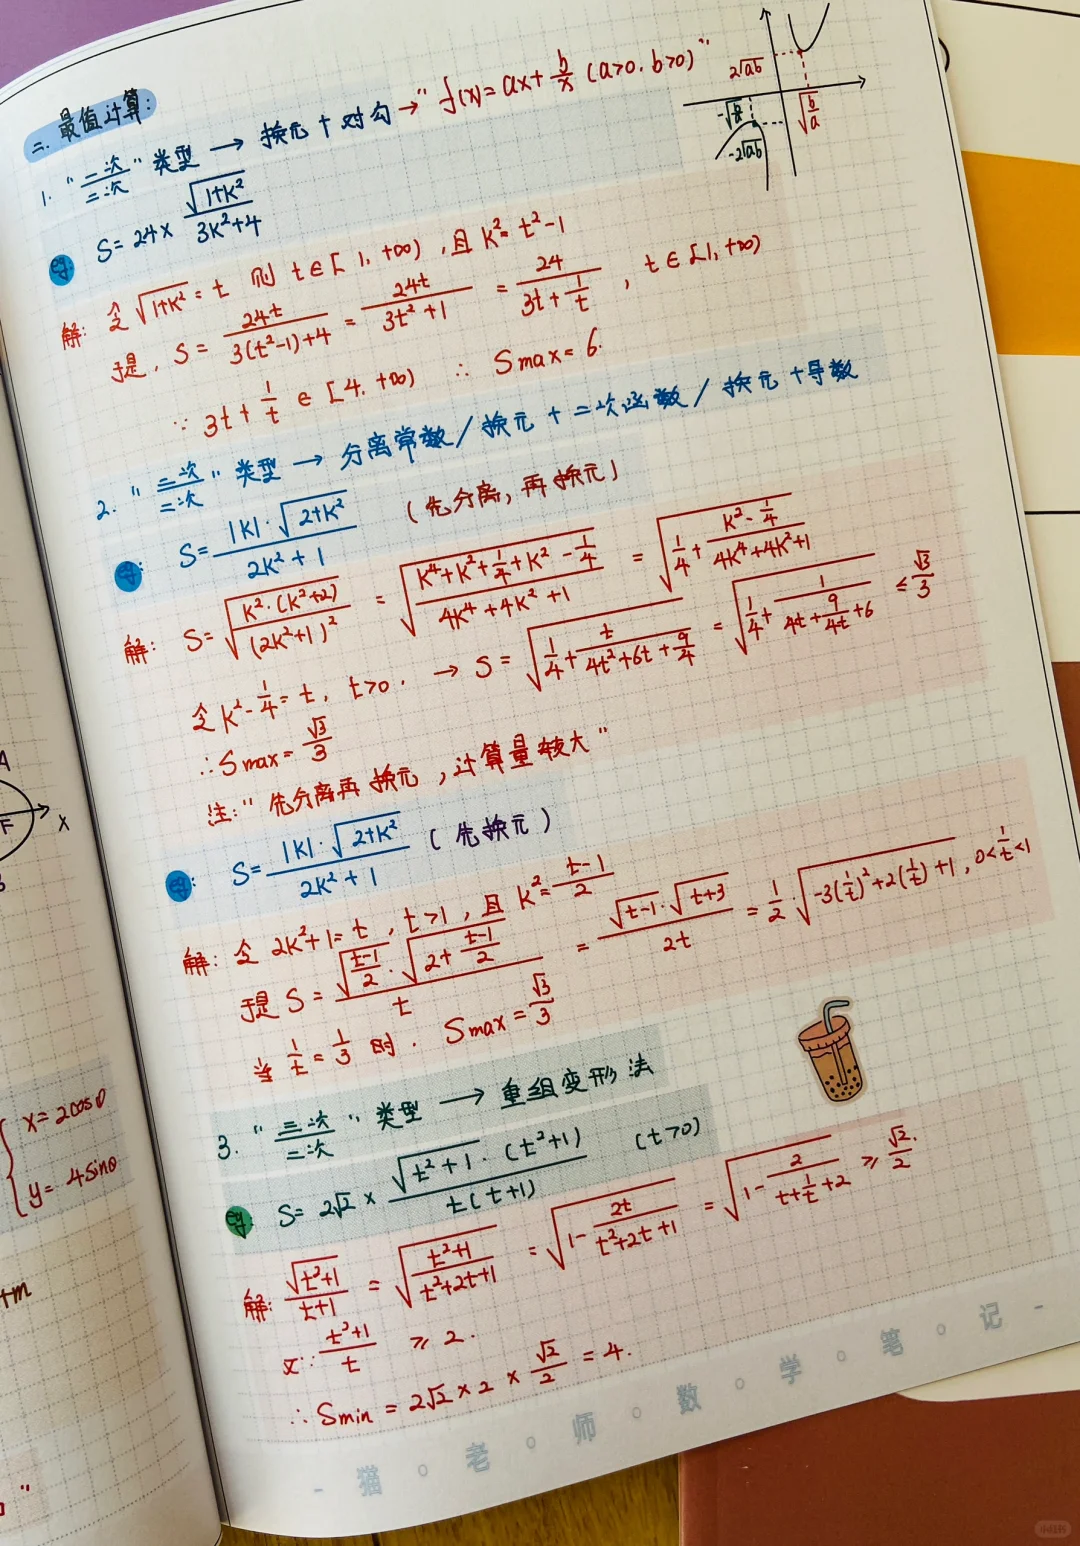 二. 最值计算:
1. "一次/二次" 类型 → 换元 + 对勾 → "f(x)= ax + b/x (a>0. b>0)"
2√ab
√(b/a)
-√(b/a)
-2√ab
eg. S = 24 × √(1+k²) / (3k²+4)
解: 令 √(1+k²) = t 则 t∈[1, +∞), 且 k² = t²-1
于是, S = 24t / (3(t²-1)+4) = 24t / (3t²+1) = 24 / (3t + 1/t) , t∈[1, +∞)
∵ 3t + 1/t ∈ [4, +∞) ∴ Smax = 6.
2. "二次/二次" 类型 → 分离常数 / 换元 + 二次函数 / 换元 + 导数
eg: S = |k|·√(2+k²) / (2k²+1) (先分离, 再换元)
解: S = √(k²·(k²+2) / (2k²+1)²) = √((k⁴+k²+1/4+k²-1/4) / (4k⁴+4k²+1)) = √(1/4 + (k²-1/4) / (4k⁴+4k²+1))
令 k²-1/4 = t, t>0. → S = √(1/4 + t / (4t²+6t+9/4)) = √(1/4 + 1 / (4t+9/4t+6)) ≤ √3/3
∴ Smax = √3/3
注: "先分离再换元, 计算量较大"
eg: S = |k|·√(2+k²) / (2k²+1) (先换元)
解: 令 2k²+1 = t, t>1, 且 k² = (t-1)/2
于是 S = √((t-1)/2)·√(2+(t-1)/2) / t = √(t-1)·√(t+3) / 2t = 1/2·√(-3(1/t)²+2(1/t)+1) , 0<1/t<1
当 1/t = 1/3 时. Smax = √3/3
3. "三次/二次" 类型 → 重组变形法
eg. S = 2√2 × √(t²+1)·(t²+1) / t(t+1) (t>0)
解: √(t²+1) / (t+1) = √((t²+1) / (t²+2t+1)) = √(1 - 2t / (t²+2t+1)) = √(1 - 2 / (t+1/t+2)) ≥ √2/2.
又∵ (t²+1)/t ≥ 2.
∴ Smin = 2√2 × 2 × √2/2 = 4.
- 猫 ○ 老 ○ 师 ○ 数 ○ 学 ○ 笔 ○ 记 -
A
F
X
x = 2cosθ
y = 4sinθ
+m
"
小红书